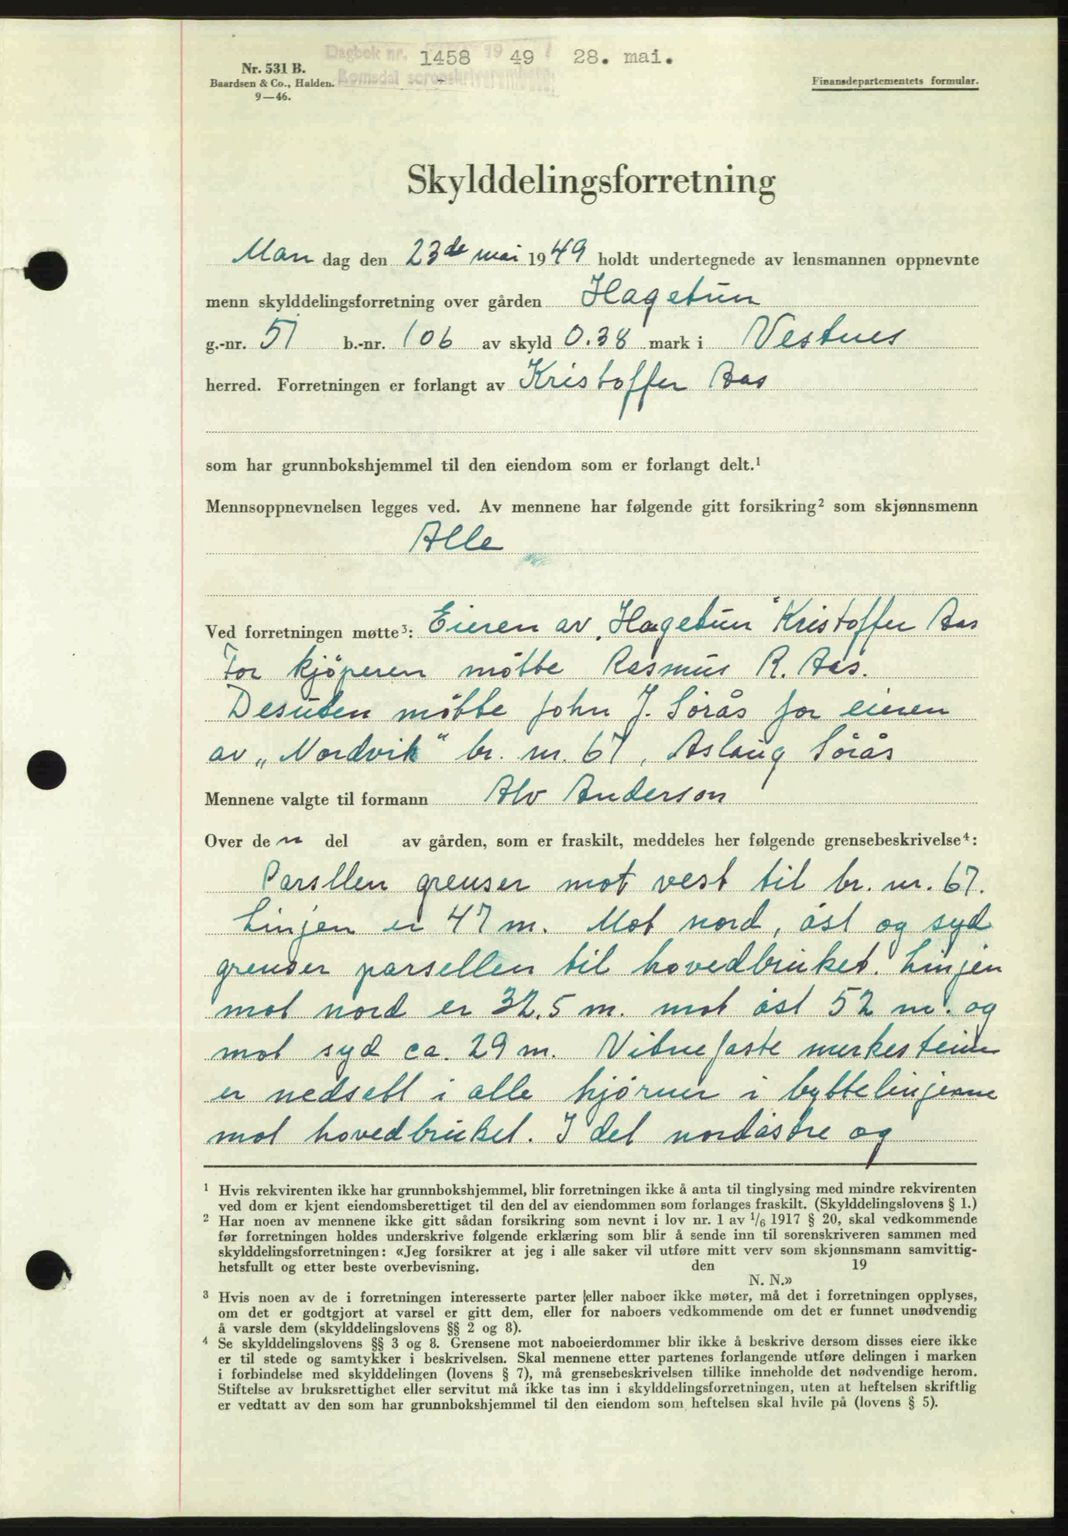 Dagbok nr. 1458 19 49 28. mai.
Romsdal sorenskriverembete
Nr. 531 B.
Baardsen & Co., Halden.
9—46.
Finansdepartementets formular.
Skylddelingsforretning
Man dag den 23de mai 1949 holdt undertegnede av lensmannen oppnevnte
menn skylddelingsforretning over gården Hagetun
g.-nr. 51 b.-nr. 106 av skyld 0.38 mark i Vestnes
herred. Forretningen er forlangt av Kristoffer Aas
som har grunnbokshjemmel til den eiendom som er forlangt delt.¹
Mennsoppnevnelsen legges ved. Av mennene har følgende gitt forsikring² som skjønnsmenn
Alle
Ved forretningen møtte³: Eieren av „Hagetun" Kristoffer Aas
For kjöperen mötte Rasmus R. Aas.
Desuten mötte John J. Sörås for eieren
av „Nordvik" br. nr. 67, Aslaug Sörås
Mennene valgte til formann Alv Anderson
Over den del av gården, som er fraskilt, meddeles her følgende grensebeskrivelse⁴:
Parsllen grenser mot vest til br. nr. 67.
Linjen er 47 m. Mot nord, öst og syd
grenser parsellen til hovedbruket. Linjen
mot nord er 32.5 m. mot öst 52 m. og
mot syd ca. 29 m. Vitnefaste merkesteiner
er nedsett i alle hjörner i byttelinjerne
mot hovedbruket. I det nordöstre og
¹ Hvis rekvirenten ikke har grunnbokshjemmel, blir forretningen ikke å anta til tinglysing med mindre rekvirenten
ved dom er kjent eiendomsberettiget til den del av eiendommen som forlanges fraskilt. (Skylddelingslovens § 1.)
² Har noen av mennene ikke gitt sådan forsikring som nevnt i lov nr. 1 av 1/6 1917 § 20, skal vedkommende
før forretningen holdes underskrive følgende erklæring som blir å sende inn til sorenskriveren sammen med
skylddelingsforretningen: «Jeg forsikrer at jeg i alle saker vil utføre mitt verv som skjønnsmann samvittig-
hetsfullt og etter beste overbevisning. den 19
N. N.»
³ Hvis noen av de i forretningen interesserte parter eller naboer ikke møter, må det i forretningen opplyses,
om det er godtgjort at varsel er gitt dem, eller for naboers vedkommende om det er funnet unødvendig
å varsle dem (skylddelingslovens §§ 2 og 8).
⁴ Se skylddelingslovens §§ 3 og 8. Grensene mot naboeierdommer blir ikke å beskrive dersom disses eiere ikke
er til stede og samtykker i beskrivelsen. Skal mennene etter partenes forlangende utføre delingen i marken
i forbindelse med skylddelingen (lovens § 7), må grensebeskrivelsen tillike inneholde det nødvendige herom.
Stiftelse av bruksrettighet eller servitut må ikke tas inn i skylddelingsforretningen, uten at heftelsen skriftlig
er vedtatt av den som har grunnbokshjemmel til den eiendom som heftelsen skal hvile på (lovens § 5).